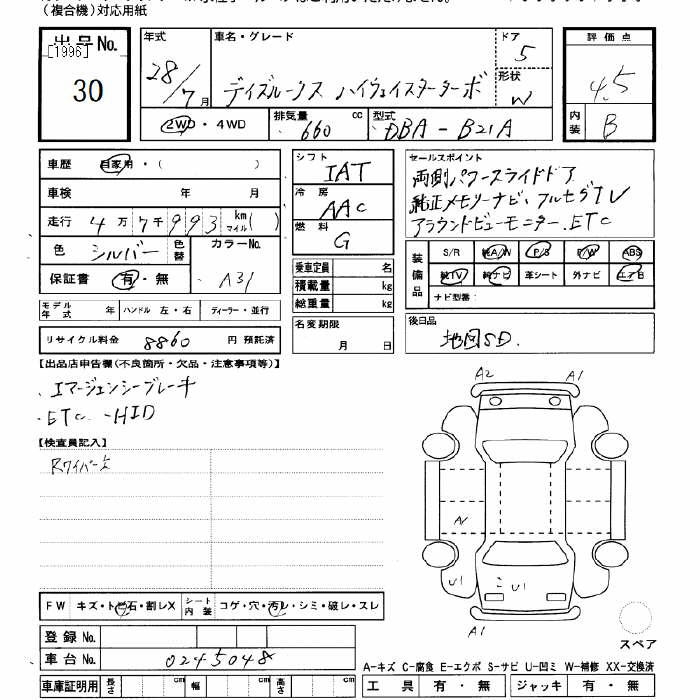 (複合機)対応用紙
出品No.
[1996]
30
年式
28/7月
車名・グレード
デイズルークス ハイウェイスターターボ
ドア
5
形状
W
2WD・4WD
排気量
660 cc
型式
DBA-B21A
評価点
4.5
内装
B
車歴 自家用・( )
車検 年 月
走行 4万7千993 km マイル( )
色 シルバー 色替 カラーNo.
A31
保証書 有・無
モデル年式 年 ハンドル 左・右 ディーラー・並行
リサイクル料金 8860 円 預託済
シフト
IAT
冷房
AAC
燃料
G
乗車定員 名
積載量 kg
総重量 kg
名変期限
月 日
セールスポイント
両側パワースライドドア
純正メモリーナビ、フルセグTV
アラウンドビューモニター.ETC
装備品
S/R 純A/W P/S P/W ABS
純TV 純ナビ 革シート 外ナビ エアB
ナビ型番:
後日品
地図SD.
【出品店申告欄(不良箇所・欠品・注意事項等)】
・エマージェンシーブレーキ
・ETC ・HID
【検査員記入】
Rワイパー欠
A2 A1
U1 U1
A1
FW キズ・ト石・割レX シート内装 コゲ・穴・汚レ・シミ・破レ・スレ
登録No.
車台No. 0245048
車庫証明用 長さ cm 幅 cm 高さ cm
スペア
A-キズ C-腐食 E-エクボ S-サビ U-凹ミ W-補修 XX-交換済
工具 有・無 ジャッキ 有・無